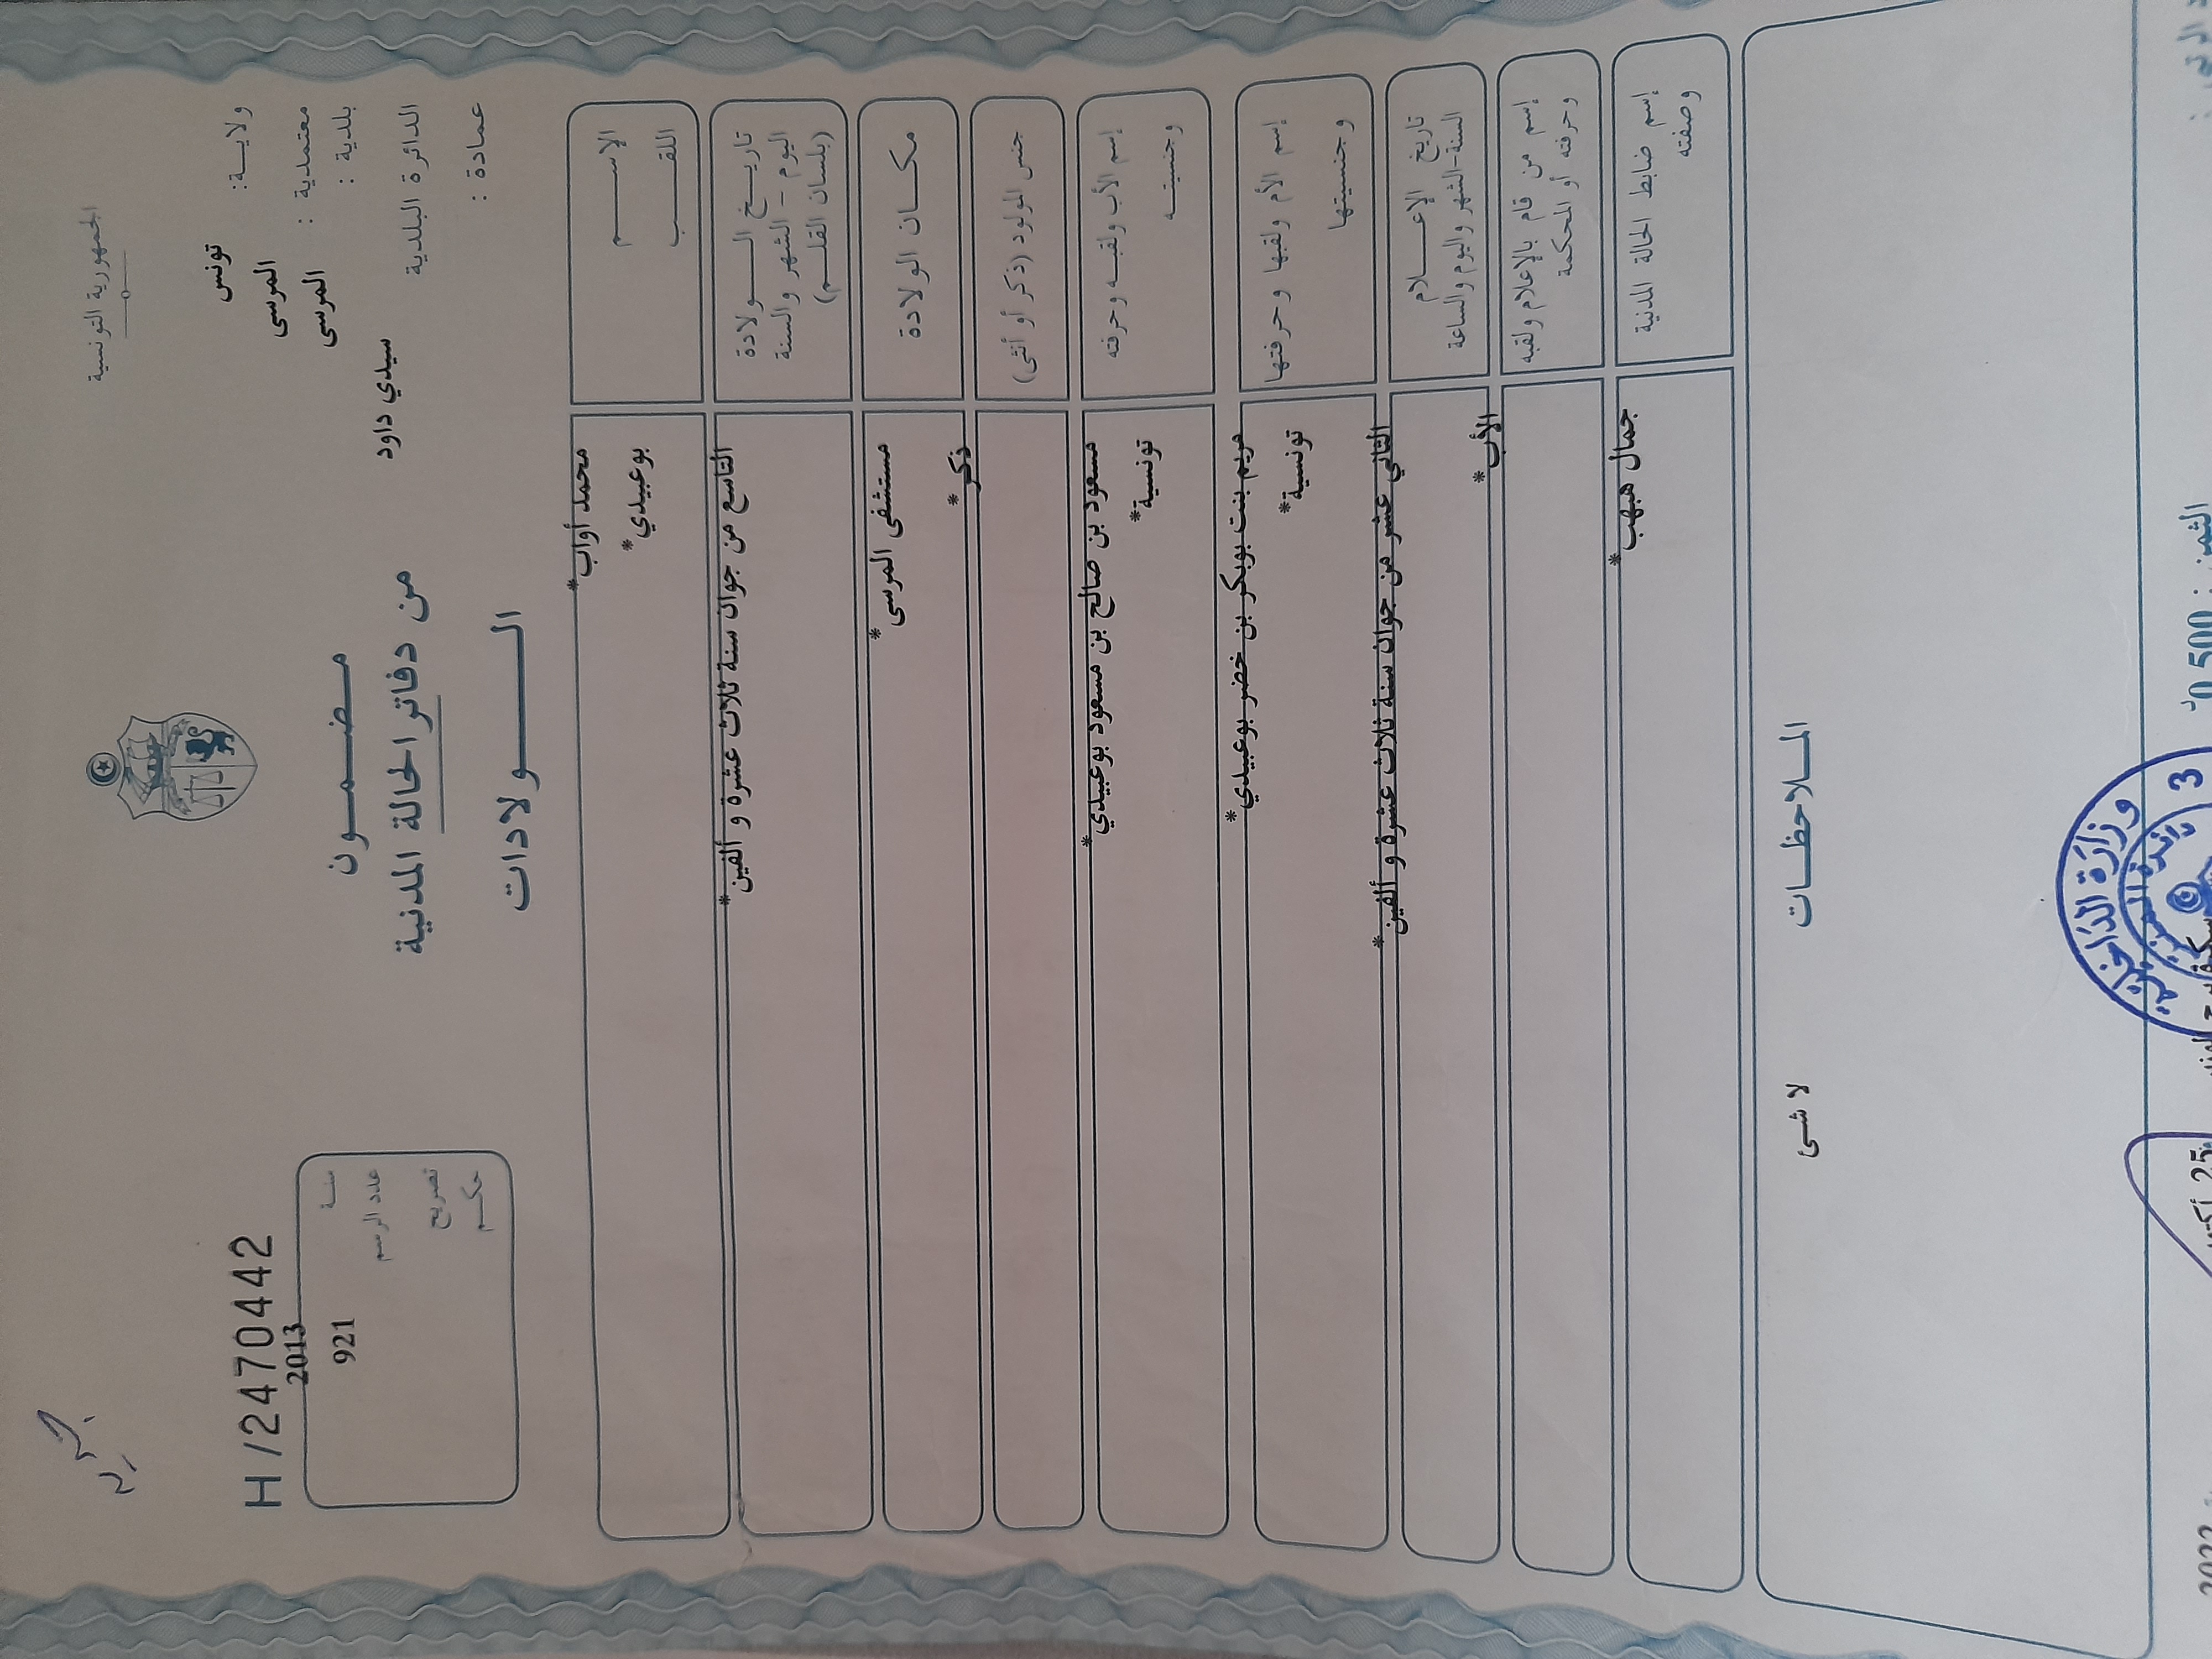 الجمهورية التونسية
ولاية: تونس
معتمدية : المرسى
بلدية : المرسى
الدائرة البلدية سيدي داود
عمادة :
مضمون
من دفاتر الحالة المدنية
الولادات
H/2470442
سنة 2013
عدد الرسم 921
تصريح
حكم
الإسم محمد أواب*
اللقب بوعبيدي*
تاريخ الولادة التاسع من جوان سنة ثلاث عشرة و ألفين*
اليوم - الشهر والسنة
(بلسان القلم)
مكان الولادة مستشفى المرسى*
جنس المولود (ذكر أو أنثى) ذكر*
إسم الأب ولقبه وحرفته مسعود بن صالح بن مسعود بوعبيدي*
وجنسيته تونسية*
إسم الأم ولقبها وحرفتها مريم بنت بوبكر بن خضر بوعبيدي*
وجنسيتها تونسية*
تاريخ الإعلام الثاني عشر من جوان سنة ثلاث عشرة و ألفين*
السنة-الشهر واليوم والساعة
إسم من قام بالإعلام ولقبه الأب*
وحرفته أو المحكمة
إسم ضابط الحالة المدنية جمال هبهب*
وصفته
الملاحظات
لا شى
وزارة الداخلية
3
25
2022
الثمن : 0,500 د